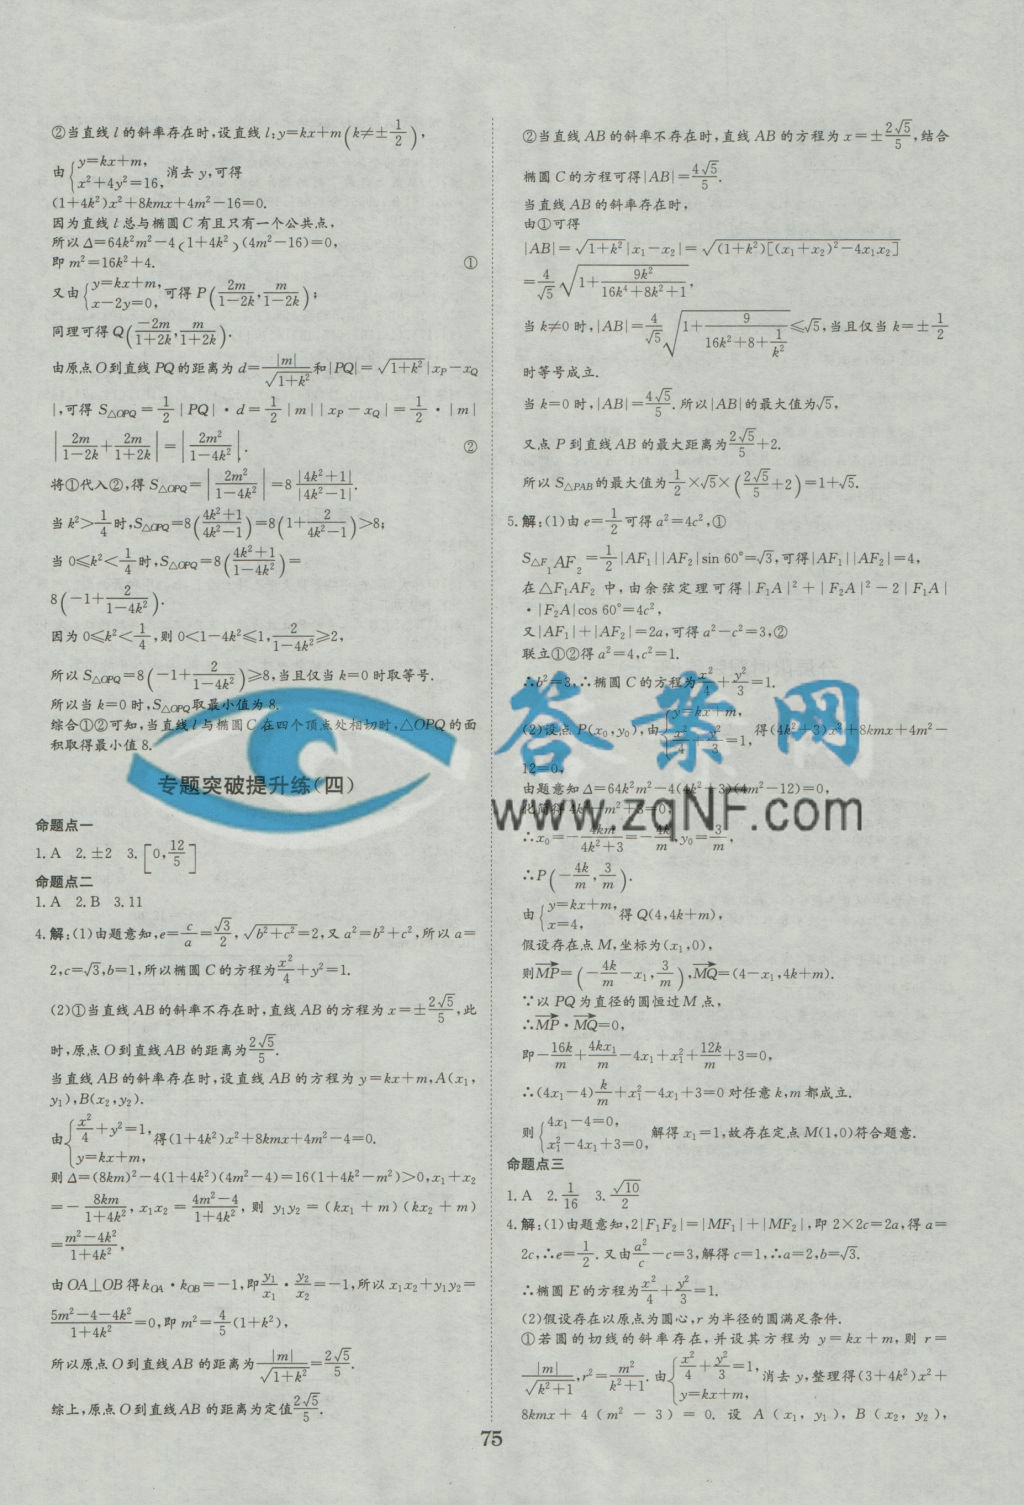 ②当直线 l 的斜率存在时,设直线 l:y=kx+m(k≠±1/2),
由{y=kx+m, x²+4y²=16, 消去 y,可得
(1+4k²)x²+8kmx+4m²-16=0.
因为直线 l 总与椭圆 C 有且只有一个公共点,
所以 Δ=64k²m²-4(1+4k²)(4m²-16)=0,
即 m²=16k²+4. ①
又由{y=kx+m, x-2y=0, 可得 P(2m/(1-2k), m/(1-2k));
同理可得 Q(-2m/(1+2k), m/(1+2k)).
由原点 O 到直线 PQ 的距离为 d=|m|/√(1+k²)和|PQ|=√(1+k²)|xP-xQ
|,可得 S△OPQ=1/2|PQ|·d=1/2|m||xP-xQ|=1/2·|m|
|2m/(1-2k)+2m/(1+2k)|=|2m²/(1-4k²)|. ②
将①代入②,得 S△OPQ=|2m²/(1-4k²)|=8|4k²+1|/|4k²-1|.
当 k²>1/4时,S△OPQ=8((4k²+1)/(4k²-1))=8(1+2/(4k²-1))>8;
当 0≤k²<1/4时,S△OPQ=8((4k²+1)/(1-4k²))=
8(-1+2/(1-4k²)).
因为 0≤k²<1/4,则 0<1-4k²≤1,2/(1-4k²)≥2,
所以 S△OPQ=8(-1+2/(1-4k²))≥8,当且仅当 k=0 时取等号.
所以当 k=0 时,S△OPQ取最小值为 8.
综合①②可知,当直线 l 与椭圆 C 在四个顶点处相切时,△OPQ 的面
积取得最小值 8.
专题突破提升练(四)
命题点一
1.A 2.±2 3.[0,12/5]
命题点二
1.A 2.B 3.11
4.解:(1)由题意知,e=c/a=√3/2,√(b²+c²)=2,又 a²=b²+c²,所以 a=
2,c=√3,b=1,所以椭圆 C 的方程为x²/4+y²=1.
(2)①当直线 AB 的斜率不存在时,直线 AB 的方程为 x=±2√5/5,此
时,原点 O 到直线 AB 的距离为2√5/5.
当直线 AB 的斜率存在时,设直线 AB 的方程为 y=kx+m,A(x₁,
y₁),B(x₂,y₂).
由{x²/4+y²=1, y=kx+m, 得(1+4k²)x²+8kmx+4m²-4=0.
则 Δ=(8km)²-4(1+4k²)(4m²-4)=16(1+4k²-m²)>0,x₁+x₂
=-8km/(1+4k²),x₁x₂=(4m²-4)/(1+4k²),则 y₁y₂=(kx₁+m)(kx₂+m)
=(m²-4k²)/(1+4k²),
由 OA⊥OB 得 kOA·kOB=-1,即y₁/x₁·y₂/x₂=-1,所以 x₁x₂+y₁y₂=
(5m²-4-4k²)/(1+4k²)=0,即 m²=4/5(1+k²),
所以原点 O 到直线 AB 的距离为|m|/√(1+k²)=2√5/5.
综上,原点 O 到直线 AB 的距离为定值2√5/5.
②当直线 AB 的斜率不存在时,直线 AB 的方程为 x=±2√5/5,结合
椭圆 C 的方程可得|AB|=4√5/5.
当直线 AB 的斜率存在时,
由①可得
|AB|=√(1+k²)|x₁-x₂|=√((1+k²)[(x₁+x₂)²-4x₁x₂])
=4/√5 √(1+9k²/(16k⁴+8k²+1)),
当 k≠0 时,|AB|=4/√5 √(1+9/(16k²+8+1/k²))≤√5,当且仅当 k=±1/2
时等号成立.
当 k=0 时,|AB|=4√5/5.所以|AB|的最大值为√5,
又点 P 到直线 AB 的最大距离为2√5/5+2.
所以 S△PAB的最大值为1/2×√5×(2√5/5+2)=1+√5.
5.解:(1)由 e=1/2可得 a²=4c²,①
S△F₁AF₂=1/2|AF₁||AF₂|sin 60°=√3,可得|AF₁||AF₂|=4,
在△F₁AF₂ 中,由余弦定理可得|F₁A|²+|F₂A|²-2|F₁A|
·|F₂A|cos 60°=4c²,
又|AF₁|+|AF₂|=2a,可得 a²-c²=3,②
联立①②得 a²=4,c²=1.
∴b²=3,∴椭圆 C 的方程为x²/4+y²/3=1.
(2)设点 P(x₀,y₀),由{y=kx+m, x²/4+y²/3=1, 得(4k²+3)x²+8kmx+4m²-
12=0,
由题意知 Δ=64k²m²-4(4k²+3)(4m²-12)=0,
化简得 4k²-m²+3=0,
∴x₀=-4km/(4k²+3)=-4k/m,y₀=3/m,
∴P(-4k/m,3/m).
由{y=kx+m, x=4, 得 Q(4,4k+m),
假设存在点 M,坐标为(x₁,0),
则MP=(-4k/m-x₁,3/m),MQ=(4-x₁,4k+m).
∵以 PQ 为直径的圆恒过 M 点,
∴MP·MQ=0,
即-16k/m+4kx₁/m-4x₁+x₁²+12k/m+3=0,
∴(4x₁-4)k/m+x₁²-4x₁+3=0 对任意 k,m 都成立.
则{4x₁-4=0, x₁²-4x₁+3=0, 解得 x₁=1,故存在定点 M(1,0)符合题意.
命题点三
1.A 2.1/16 3.√10/2
4.解:(1)由题意知,2|F₁F₂|=|MF₁|+|MF₂|,即 2×2c=2a,得 a=
2c,∴e=1/2.又由a²/c-c=3,解得 c=1,∴a=2,b=√3.
∴椭圆 E 的方程为x²/4+y²/3=1.
(2)假设存在以原点为圆心,r 为半径的圆满足条件.
①若圆的切线的斜率存在,并设其方程为 y=kx+m,则 r=
|m|/√(k²+1),r²=m²/(k²+1).由{x²/4+y²/3=1, y=kx+m, 消去 y,整理得(3+4k²)x²+
8kmx+4(m²-3)=0.设 A(x₁,y₁),B(x₂,y₂),
75
答案网
www.zqNF.com